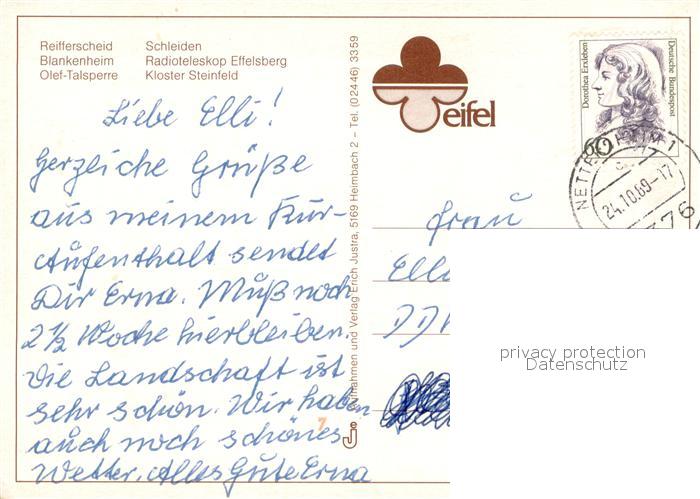 Reifferscheid Schleiden
Blankenheim Radioteleskop Effelsberg
Olef-Talsperre Kloster Steinfeld
Liebe Elli!
Herzliche Grüße
aus meinem Kur-
Aufenthalt sendet
Dir Erna. Muß noch
2 1/2 Woche hierbleiben.
Die Landschaft ist
sehr schön. Wir haben
auch noch schönes
Wetter. Alles Gute Erna
Aufnahmen und Verlag Erich Justra, 5169 Heimbach 2 – Tel. (02446) 3359
eifel
Dorothea Erxleben
Deutsche Bundespost
60
24.10.89-17
Frau
privacy protection
Datenschutz